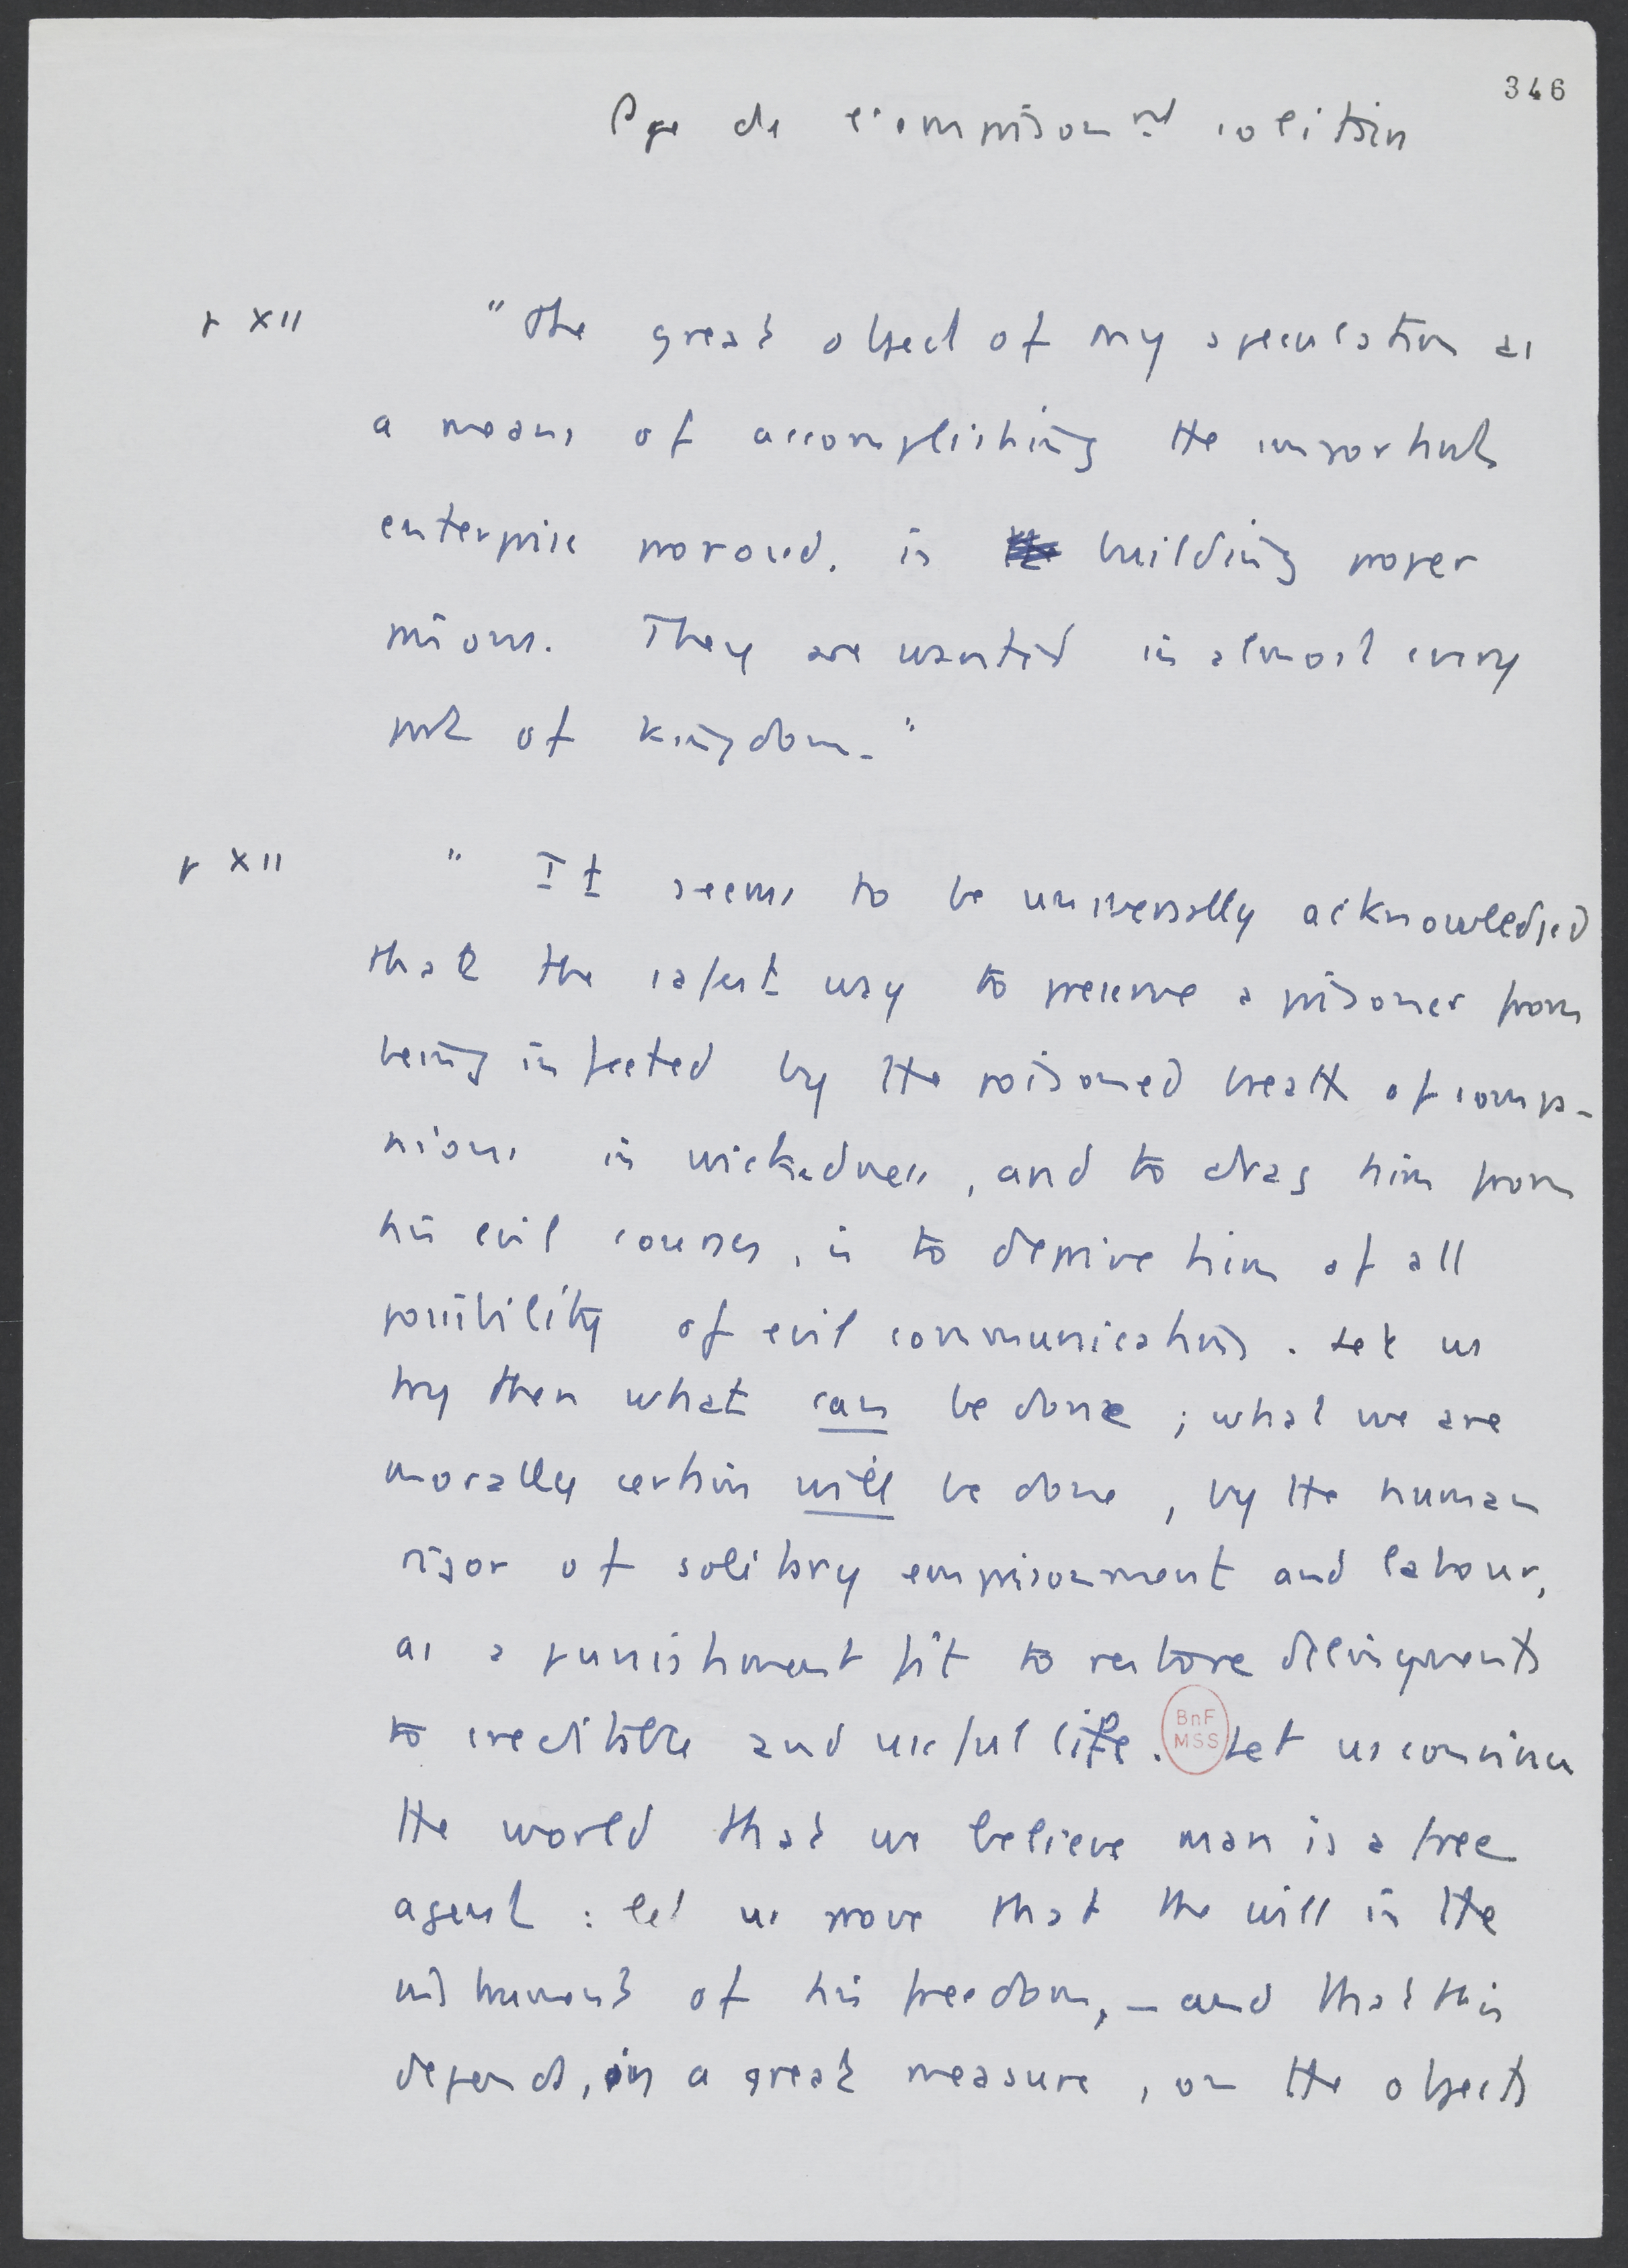 346
Pge de l'emprisonnt solitaire
p XII "The great object of my speculation as
a means of accomplishing the important
enterprise proposed, is building proper
prisons. They are wanted in almost every
part of kingdom."
p XII " It seems to be universally acknowledged
that the safest way to preserve a prisoner from
being infected by the poisoned breath of compa-
nions in wickedness, and to drag him from
his evil courses, is to deprive him of all
possibility of evil communication. Let us
try then what can be done ; what we are
morally certain will be done, by the human
rigor of solitary emprisonment and labour,
as a punishment fit to restore delinquents
to creditable and useful life. Let us convince
BnF
MSS
the world that we believe man is a free
agent : let us prove that the will is the
instrument of his freedom, - and that this
depends, in a great measure, on the objects